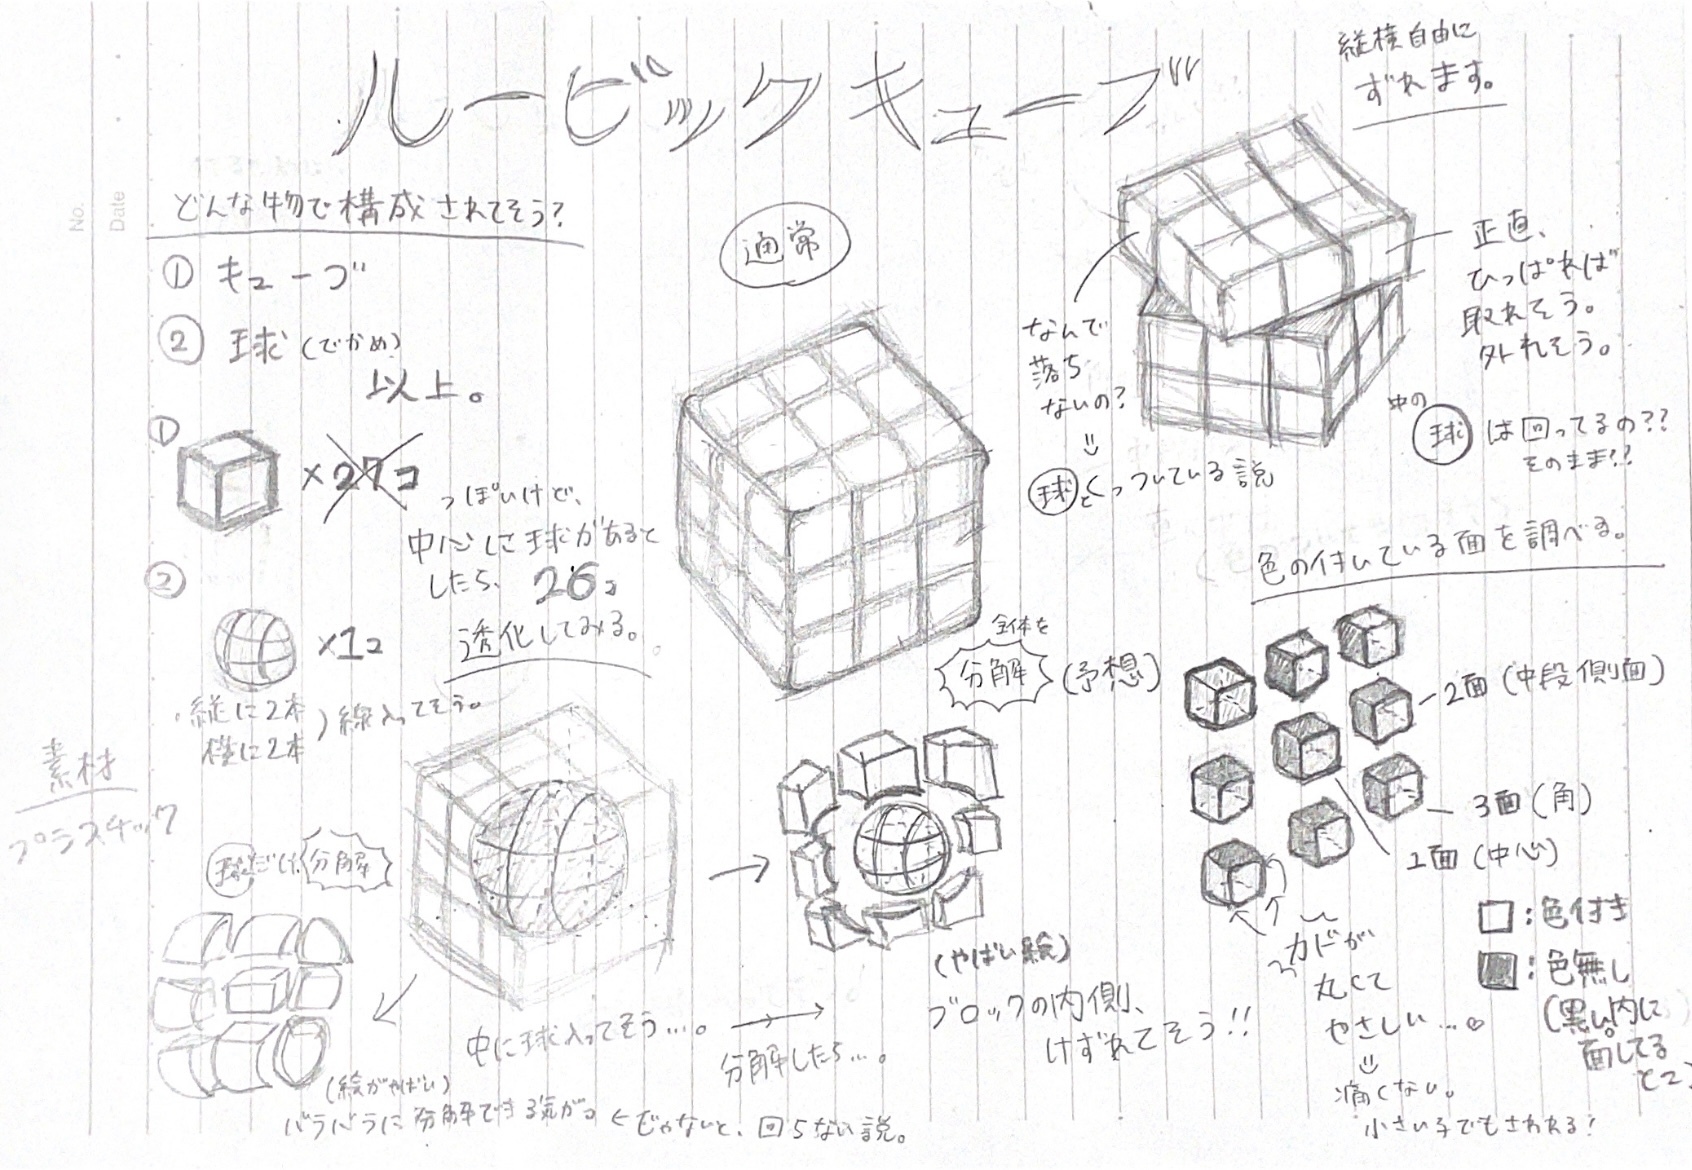 ルービックキューブ
No.
Date
どんな物で構成されてそう?
① キューブ
② 球 (でかめ)
以上。
①
×27コ
っぽいけど、
中心に球があると
したら、26コ
②
×1コ
・縦に2本
横に2本
) 線入ってそう。
透化してみる。
素材
プラスチック
球だけ分解
(絵がやばい)
バラバラに分解できる気がする
←じゃないと、回らない説。
中に球入ってそう…。
分解したら…。
通常
全体を
分解 (予想)
(やばい絵)
ブロックの内側、
けずれてそう!!
縦横自由に
ずれます。
なんで
落ち
ないの?
球とくっついている説
正直、
ひっぱれば
取れそう。
外れそう。
中の
球 は回ってるの??
そのまま??
色の付いている面を調べる。
2面 (中段側面)
3面 (角)
1面 (中心)
カドが
丸くて
やさしい…♡
痛くない。
小さい子でもさわれる!
□:色付き
■:色無し
(黒い。内に
面してる
とこ)